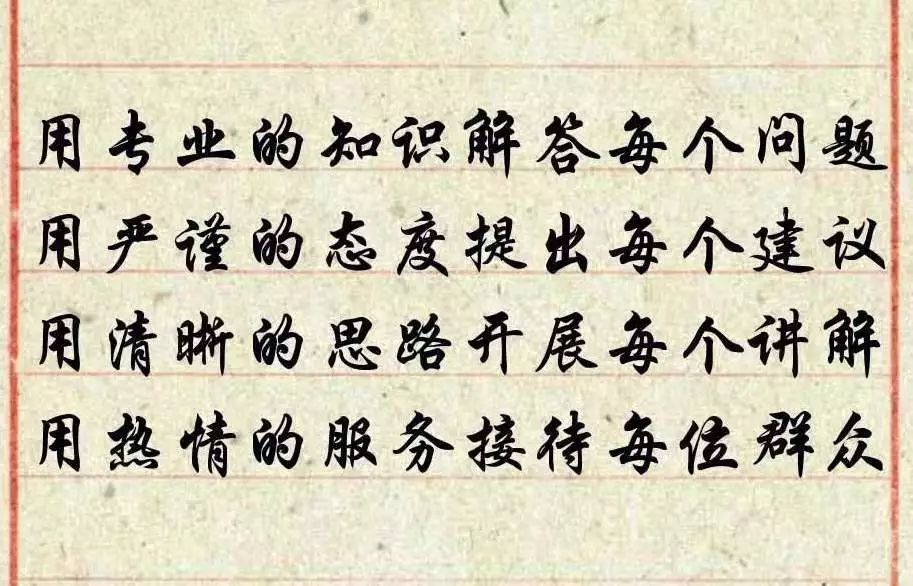 用专业的知识解答每个问题
用严谨的态度提出每个建议
用清晰的思路开展每个讲解
用热情的服务接待每位群众